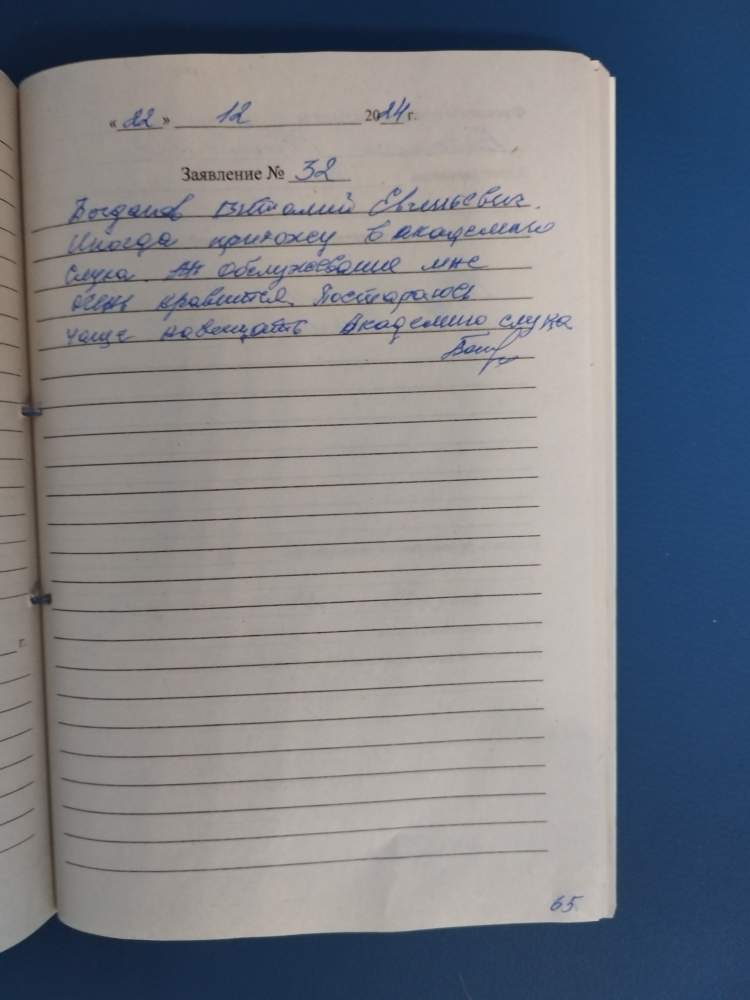 «22» 12 2024 г.
Заявление № 32
Богданов Виталий Евгеньевич.
Иногда прихожу в Академию
слуха. Обслуживание мне
очень нравится. Постараюсь
чаще навещать Академию слуха
г.
65